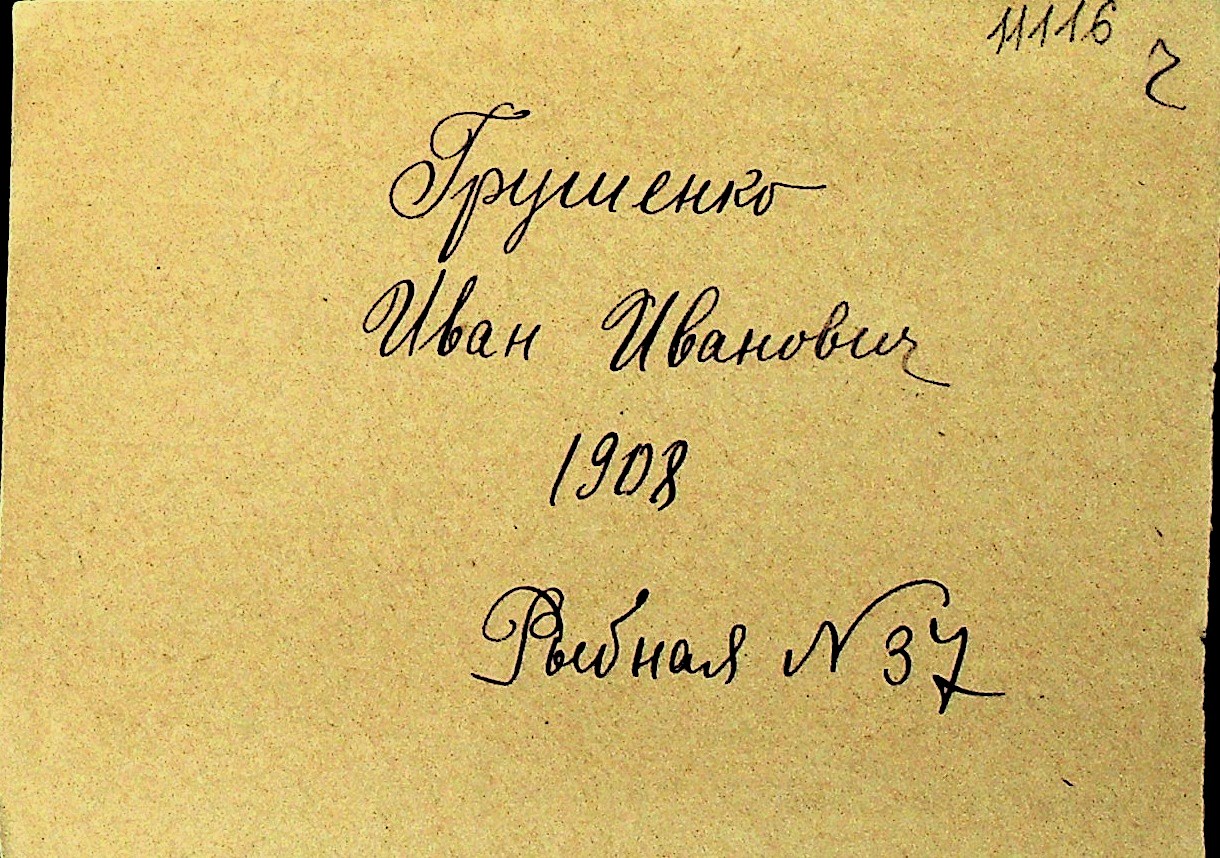 11116
Грушенко
Иван Иванович
1908
Рыбная N 37